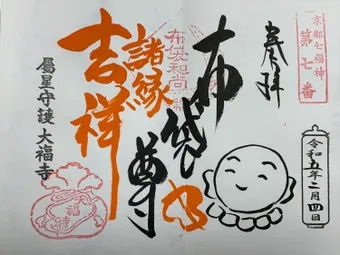 京都七福神
第七番
奉拝
令和五年二月四日
布袋尊
布袋和尚
諸縁
吉祥
屬星守護 大福寺
福